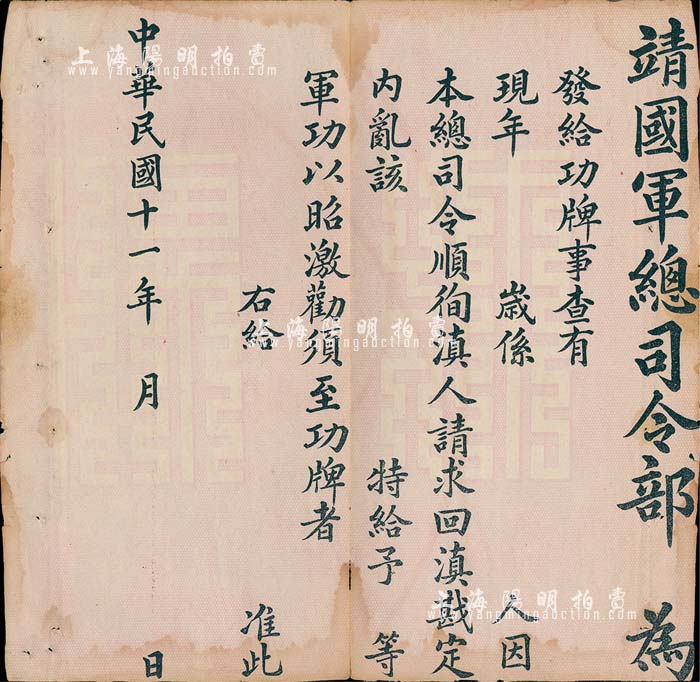 靖國軍總司令部 為
發給功牌事查有
現年 歲係 人因
本總司令順徇滇人請求回滇戡定
內亂該 特給予 等
軍功以昭激勸須至功牌者
右給 准此
中華民國十一年 月 日
上海陽明拍賣
www.yangmingauction.com
上海陽明拍賣
www.yangmingauction.com
上海陽明拍賣
www.yangmingauction.com